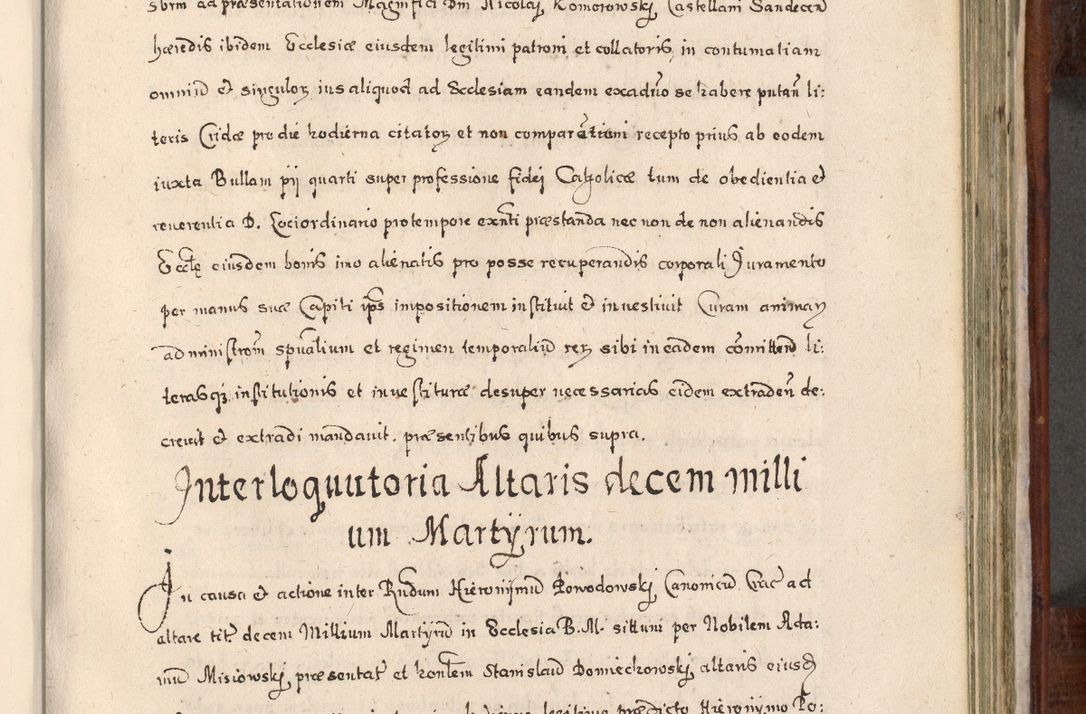 sbrm ad præsentationem Magnifici Dni Nicolai Komorowskj Castellani Sandecen
hæredis ibidem Ecclesiæ eiusdem legitimi patroni et collatoris in contumatiam
omniũ et singuloꝝ ius aliquod ad Ecclesiam eandem ex aduo se habere putañ li:
teris Cridæ pro die hodierna citatoꝝ et non comparentium recepto prius ab eodem
iuxta Bullam pij quarti super professione fidej Catholicæ tum de obedientia et
reuerentia D. Lociordinario pro tempore exñti præstanda nec non de non alienandis
Ecclę eiusdem bonis imo alienatis pro posse recuperandis corporali Juramento
per manus suæ Capiti ips impositionem instituit et inuestiuit Curam animaꝝ
administrom̃ spũalium et regimen temporaliũ reꝝ sibi in eadem com̃ittend li:
terasqꝫ institutionis et inuestituræ desuper necessarias eidem extradeñ de:
creuit et extradi mandauit. præsentibus quibus supra.
Interloquutoria Altaris decem milli
um Martÿrum.
In causa et actione inter Rndum Hieronijmũ Powodowskj Canonicũ Crac ad
altare titł decem Millium Martÿrũ in Ecclesia B. M. situm per Nobilem Ada:
mũ Misiowskj præsentat et honłem Stanislaũ Domiechowskj altaris eiusd
legitime prædicto Hieronÿmo Po: